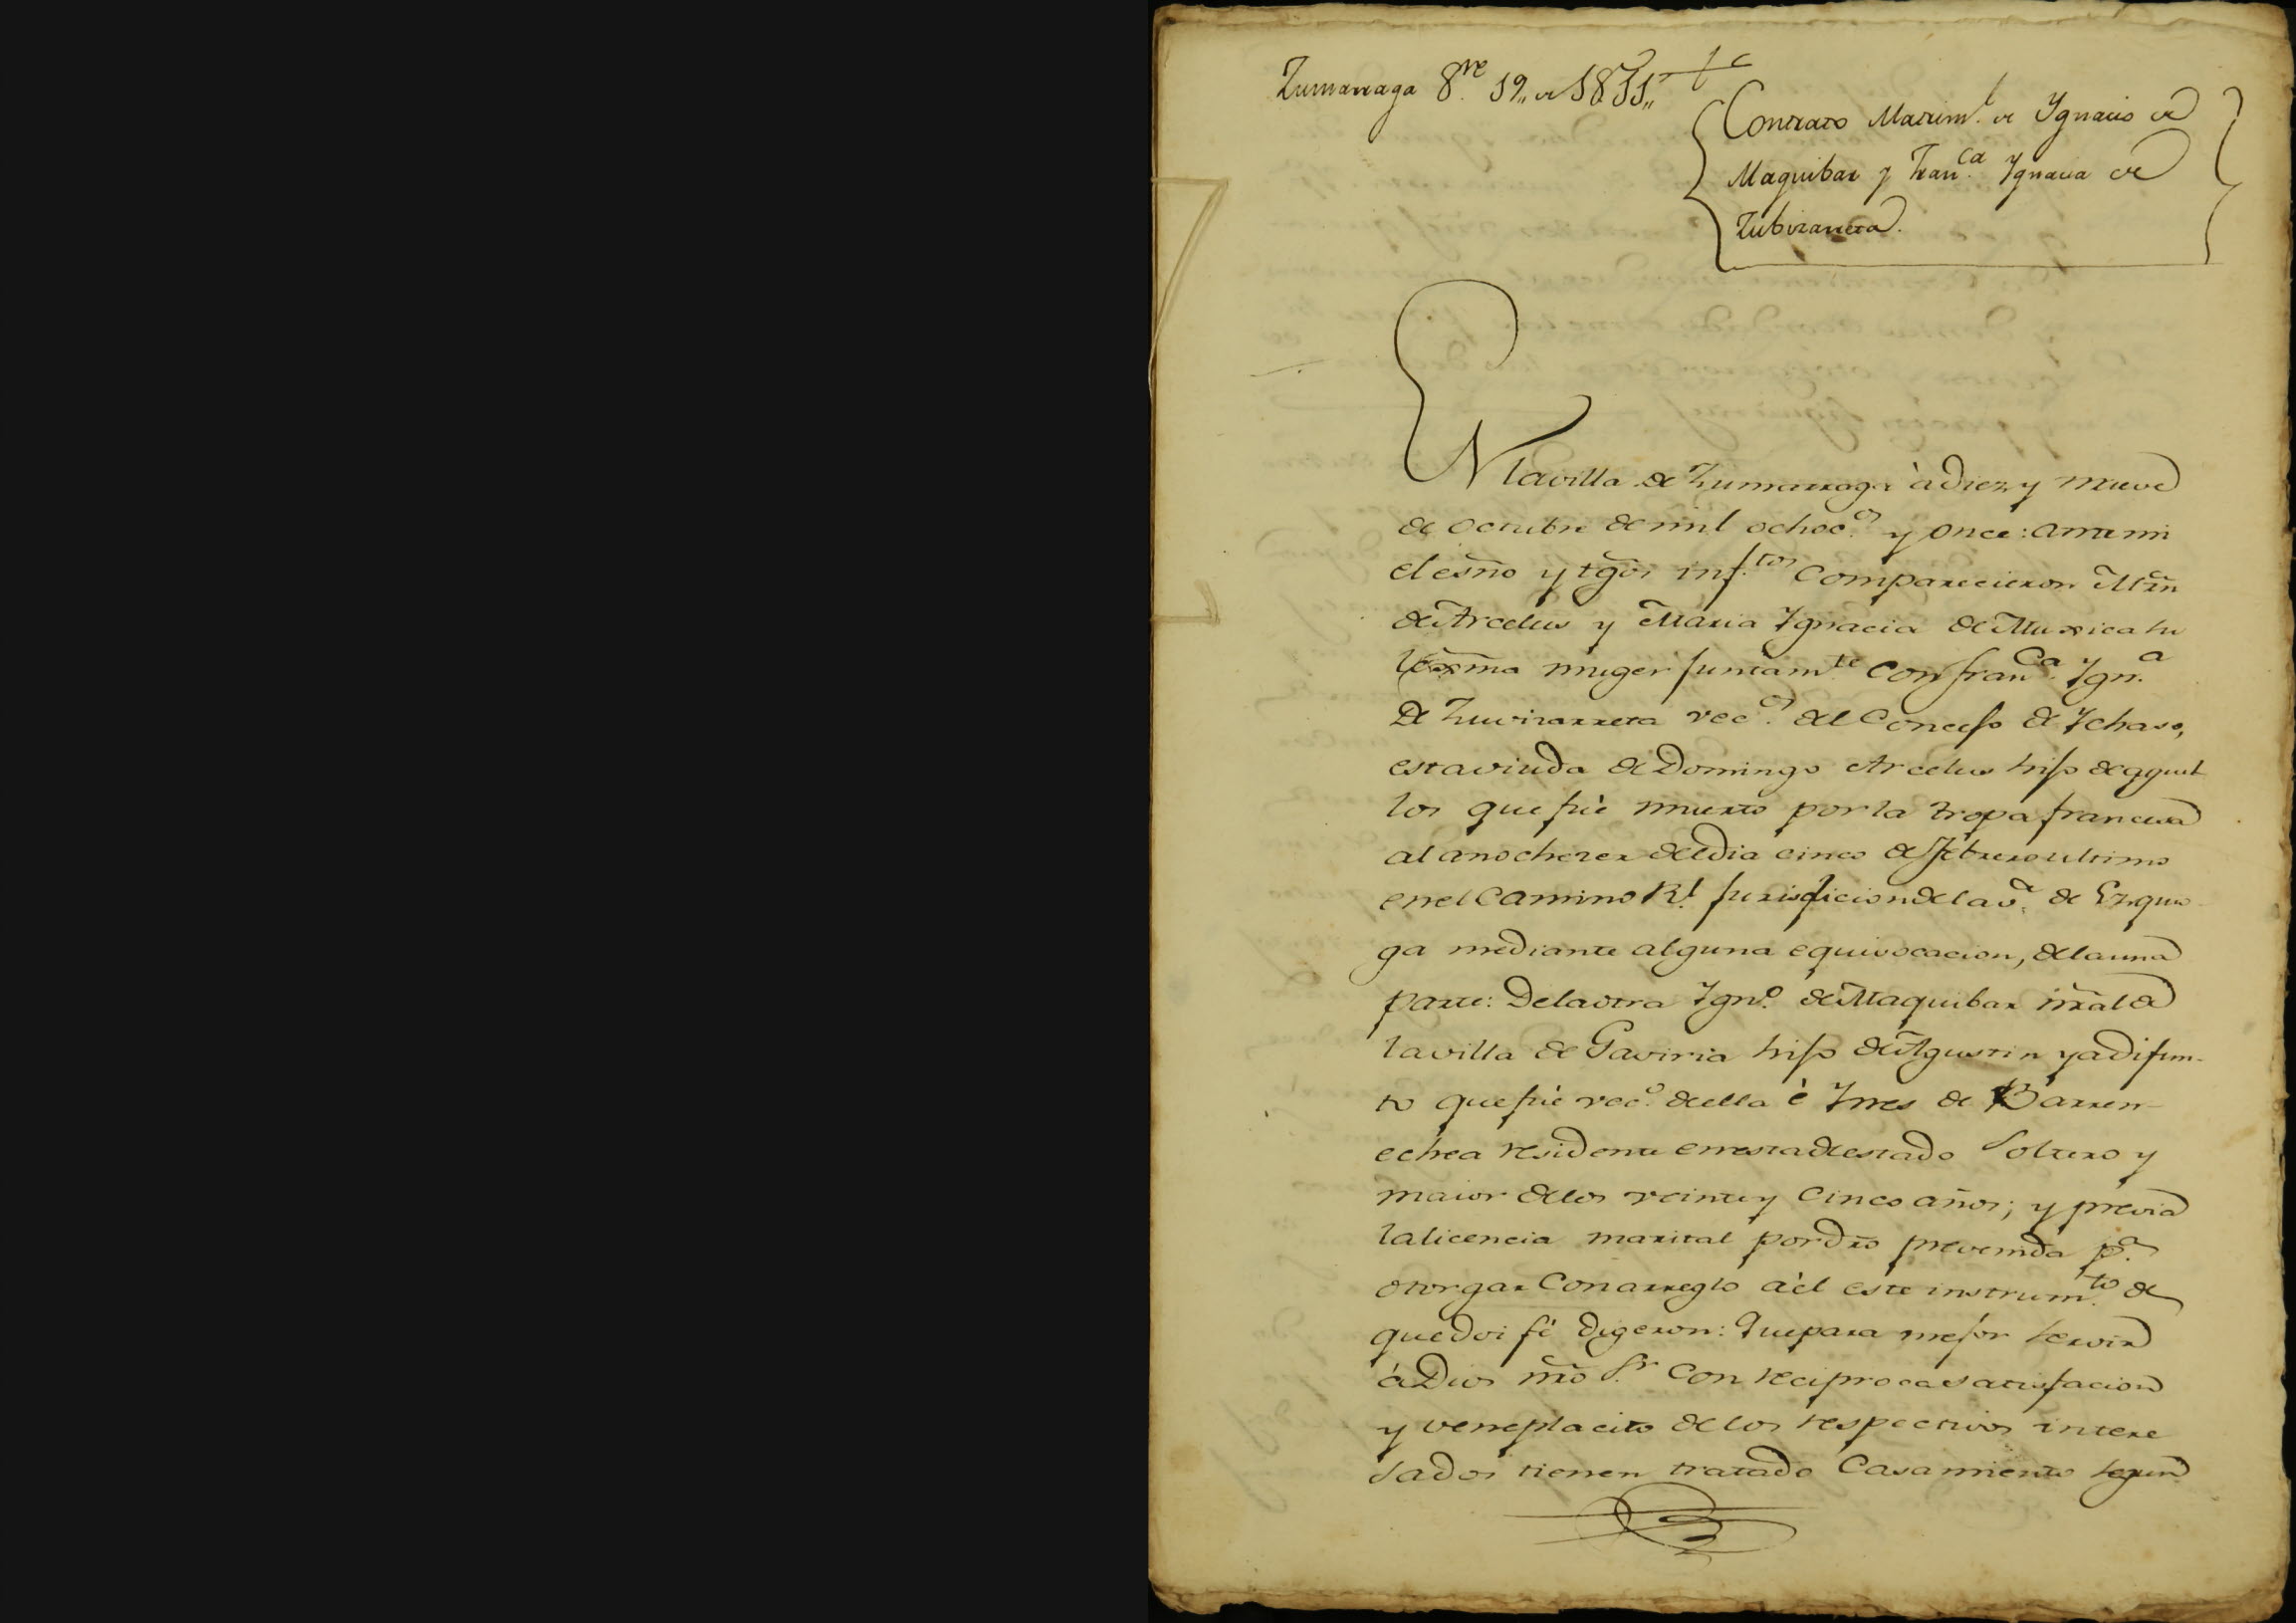 Zumarraga 8.re 19,, de 1811,,
Contrato Matrim.l de Ygnacio de
Maquibar y Fran.ca Ygnacia de
Zubizarreta.
EN la villa de Zumarraga à diez y nueve
de Octubre de mil ochoc.s y once: ante mi
el esño y tgõs inf.tos Comparecieron Mrñ
de Arcelus y Maria Ygnacia de Muxica su
lexma muger juntam.te con Fran.ca Ygn.a
De Zuvizarreta vec.s del Concejo de Ychaso,
esta viuda de Domingo Arcelus hijo de aquel
los que fuè muerto por la tropa francesa
al anochezer del dia cinco de Febrero ultimo
en el Camino R.l jurisdicion de la v.a de Ezquio
ga mediante alguna equivocacion, de la una
parte: De la otra Ygn.o de Maquibar nr̃al de
la villa de Gaviria hijo de Agustin ya difun-
to que fuè vec.o de ella è Ynes de Barren-
echea residente en esta de estado Soltero y
maior de los veinte y cinco años; y previa
la licencia marital por dr̃o prevenida p.a
otorgar Con arreglo à èl este instrum.to de
que doi fé digeron: Que para mejor servir
à Dios nr̃o S.r Con reciproca satisfacion
y veneplacito de los respectivos intere
sados tienen tratado Casamiento segun